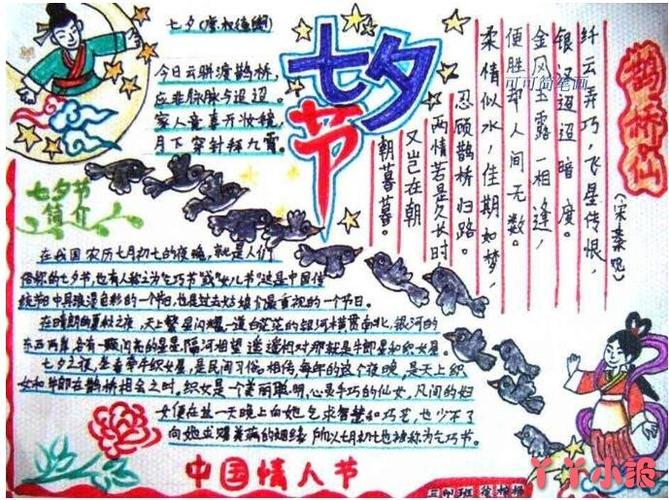 七夕节
七夕(唐权德舆)
今日云骈渡鹊桥，
应非脉脉与迢迢。
家人竟喜开妆镜，
月下穿针拜九霄。
鹊桥仙
(宋秦观)
纤云弄巧，飞星传恨，
银汉迢迢暗度。
金风玉露一相逢，
便胜却人间无数。
柔情似水，佳期如梦，
忍顾鹊桥归路。
两情若是久长时
又岂在朝
朝暮暮。
可可简笔画
七夕节
简介
在我国农历七月初七的夜晚，就是人们
俗称的七夕节，也有人称之为"乞巧节"或"女儿节"这是中国传
统节日中具浪漫色彩的一个节日，也是过去姑娘们最重视的一个节日。
在晴朗的夏秋之夜，天上繁星闪耀一道白茫茫的银河横贯南北，银河的
东西两岸，各有一颗闪亮的星星隔河相望 遥遥相对那就是牛郎星和织女星。
七夕之夜，坐看牵牛织女星，是民间习俗。相传每年的这个夜晚，是天上织
女和牛郎在鹊桥相会之时。织女是一个美丽聪明，心灵手巧的仙女，凡间的妇
女便在这一天晚上向她乞求智慧和巧艺，也少不了
向她求赐美满的姻缘 所以七月初七也被称为乞巧节。
中国情人节
丫丫小报